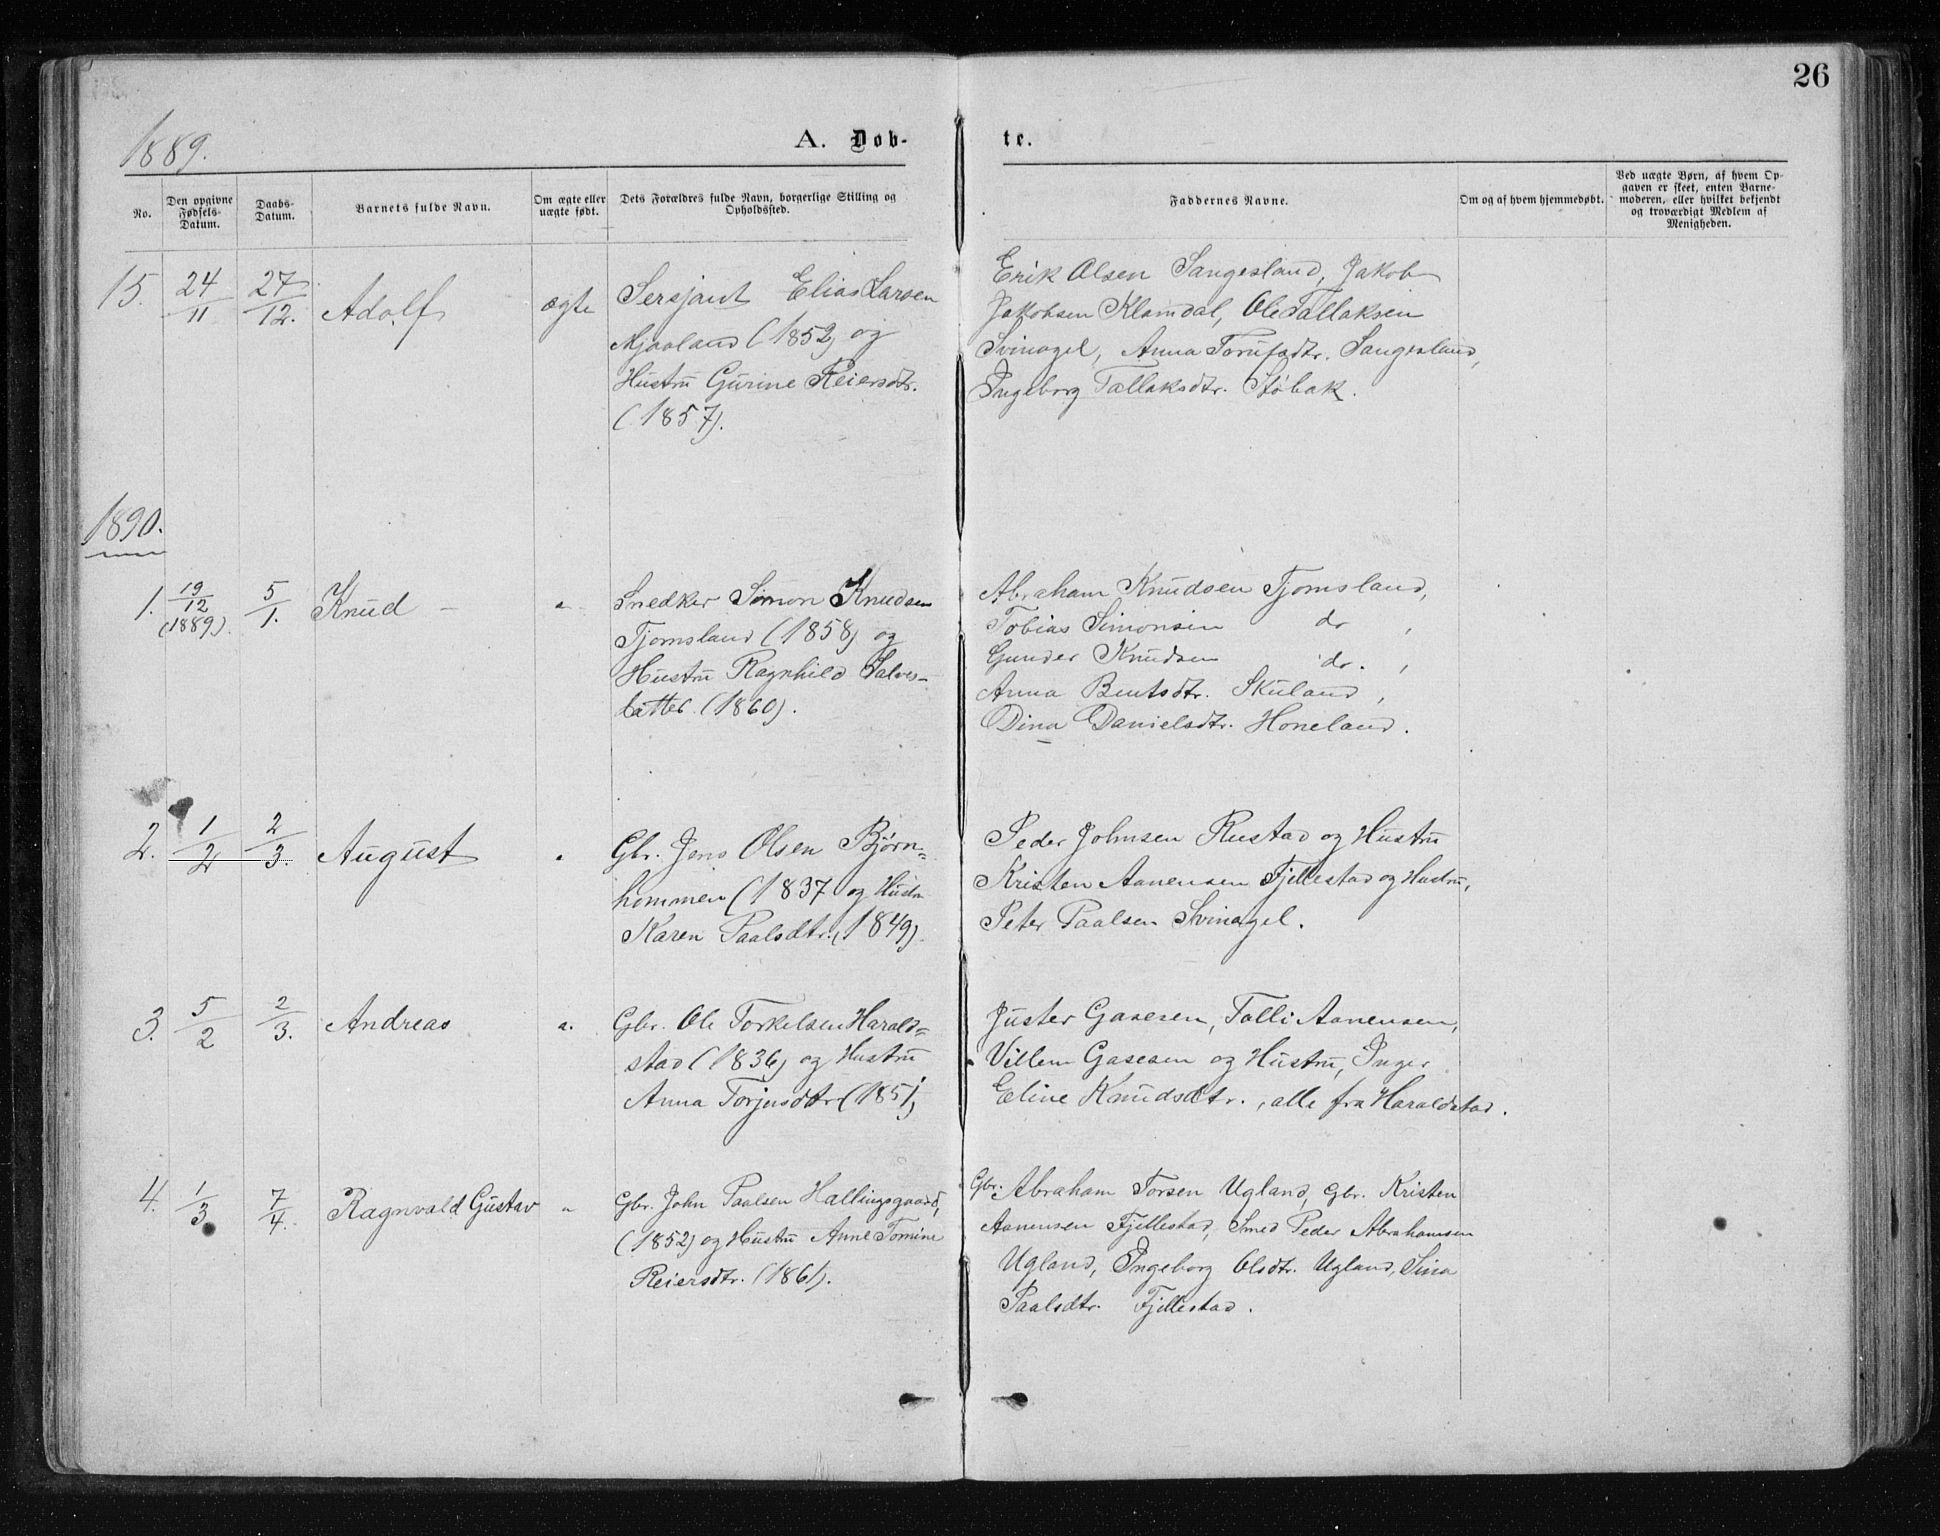 26
1889.
A. Døb-
te.
No.
Den opgivne Fødsels-Datum.
Daabs-Datum.
Barnets fulde Navn.
Om ægte eller uægte født.
Dets Forældres fulde Navn, borgerlige Stilling og Opholdssted.
Faddernes Navne.
Om og af hvem hjemmedøbt.
Ved uægte Børn, af hvem Op-
gaven er skeet, enten Barne-
moderen, eller hvilket bekjendt
og troværdigt Medlem af
Menigheden.
15. 24/11 27/12. Adolf ægte
Sersjant Elias Larsen
Mjaaland (1852) og
Hustru Gurine Reiersdtr.
(1857).
Erik Olsen Sangesland, Jakob
Jakobsen Klamdal, Ole Tallaksen
Svinagel, Anna Sangesland,
Ingeborg Tallaksdtr. Støbak.
1890.
1. 19/12 (1889). 5/1. Knud "
Snedker Simon Knudsen
Tjomsland (1858) og
Hustru Ragnhild Salves-
datter (1860).
Abraham Knudsen Tjomsland,
Tobias Simonsen do ,
Gunder Knudsen do. ,
Anna Bentsdtr. Skuland,
Dina Danielsdtr. Honeland.
2. 1/2 2/3. August "
Gbr. Jens Olsen Bjørn=
kommen (1837 og Hustru
Karen Paalsdtr. (1849).
Peder Johnsen Rustad og Hustru
Kristen Aanensen Fjellestad og Hustru,
Peter Paalsen Svinagel.
3. 5/2 2/3. Andreas "
Gbr. Ole Torkelsen Harald=
stad (1836) og Hustru
Anna Torjusdtr (1851)
Juster Gasesen, Tolli Aanensen,
Villem Gasesen og Hustru, Inger
Eline Knudsdtr., alle fra Haraldstad.
4. 1/3 7/4. Ragnvald Gustav "
Gbr. John Paalsen Hallingsgaard,
(1852) og Hustru Anne Tomine
Reiersdtr. (1861).
Gbr. Abraham Torsen Ugland, Gbr. Kristen
Aanensen Fjellestad, Smed Peder Abrahamsen
Ugland, Ingeborg Olsdtr. Ugland, Sina
Paalsdtr. Fjellestad.